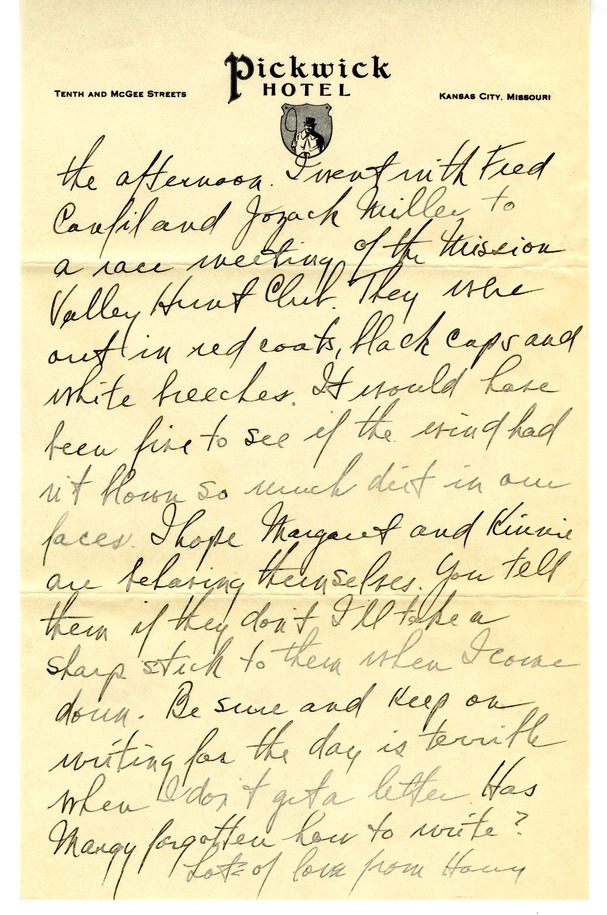 Pickwick
HOTEL
TENTH AND MCGEE STREETS
KANSAS CITY, MISSOURI
the afternoon. I went with Fred
Canfil and Miller to
a race meeting of the Mission
Valley Hunt Club. They were
out in red coats, black caps and
white breeches. It would have
been fine to see if the wind had
n't blown so much dirt in our
faces. I hope Margaret and
are behaving themselves. You tell
them if they don't I'll take a
sharp stick to them when I come
down. Be sure and keep on
writing for the day is terrible
when I don't get a letter. Has
Margy forgotten how to write?
Lots of love from Harry